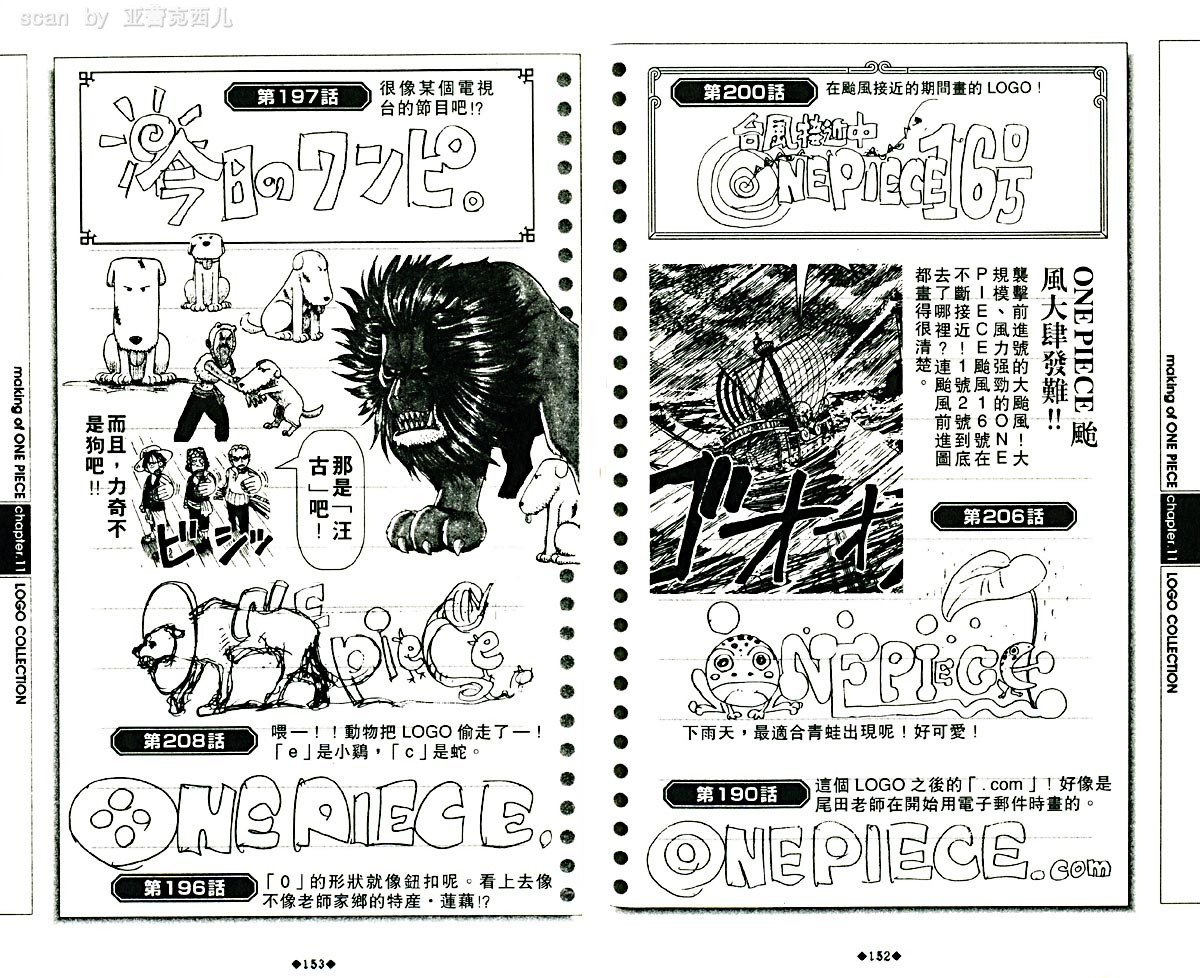 scan by 亚蕾克西儿
第200話
在颱風接近的期間畫的 LOGO！
台風接近中
ONEPIECE16号
ONE PIECE 颱
風大肆發難!!
襲擊前進號的大颱風！大
規模、風力强勁的ONE
PIECE颱風16號在
不斷接近！1號2號到底
去了哪裡？連颱風前進圖
都畫得很清楚。
ゴオオオ
第206話
ONEPIECE
下雨天，最適合青蛙出現呢！好可愛！
第190話
這個 LOGO 之後的「.com」！好像是
尾田老師在開始用電子郵件時畫的。
ONEPIECE.com
making of ONE PIECE
chapter.11
LOGO COLLECTION
◆152◆
第197話
很像某個電視
台的節目吧!?
今日のワンピ。
那是「汪
古」吧！
而且，力奇不
是狗吧!!
ビシッ
ONE piece
第208話
喂—！！動物把 LOGO 偷走了—！
「e」是小鷄，「c」是蛇。
ONE PIECE.
第196話
「O」的形狀就像鈕扣呢。看上去像
不像老師家鄉的特産・蓮藕!?
making of ONE PIECE
chapter.11
LOGO COLLECTION
◆153◆